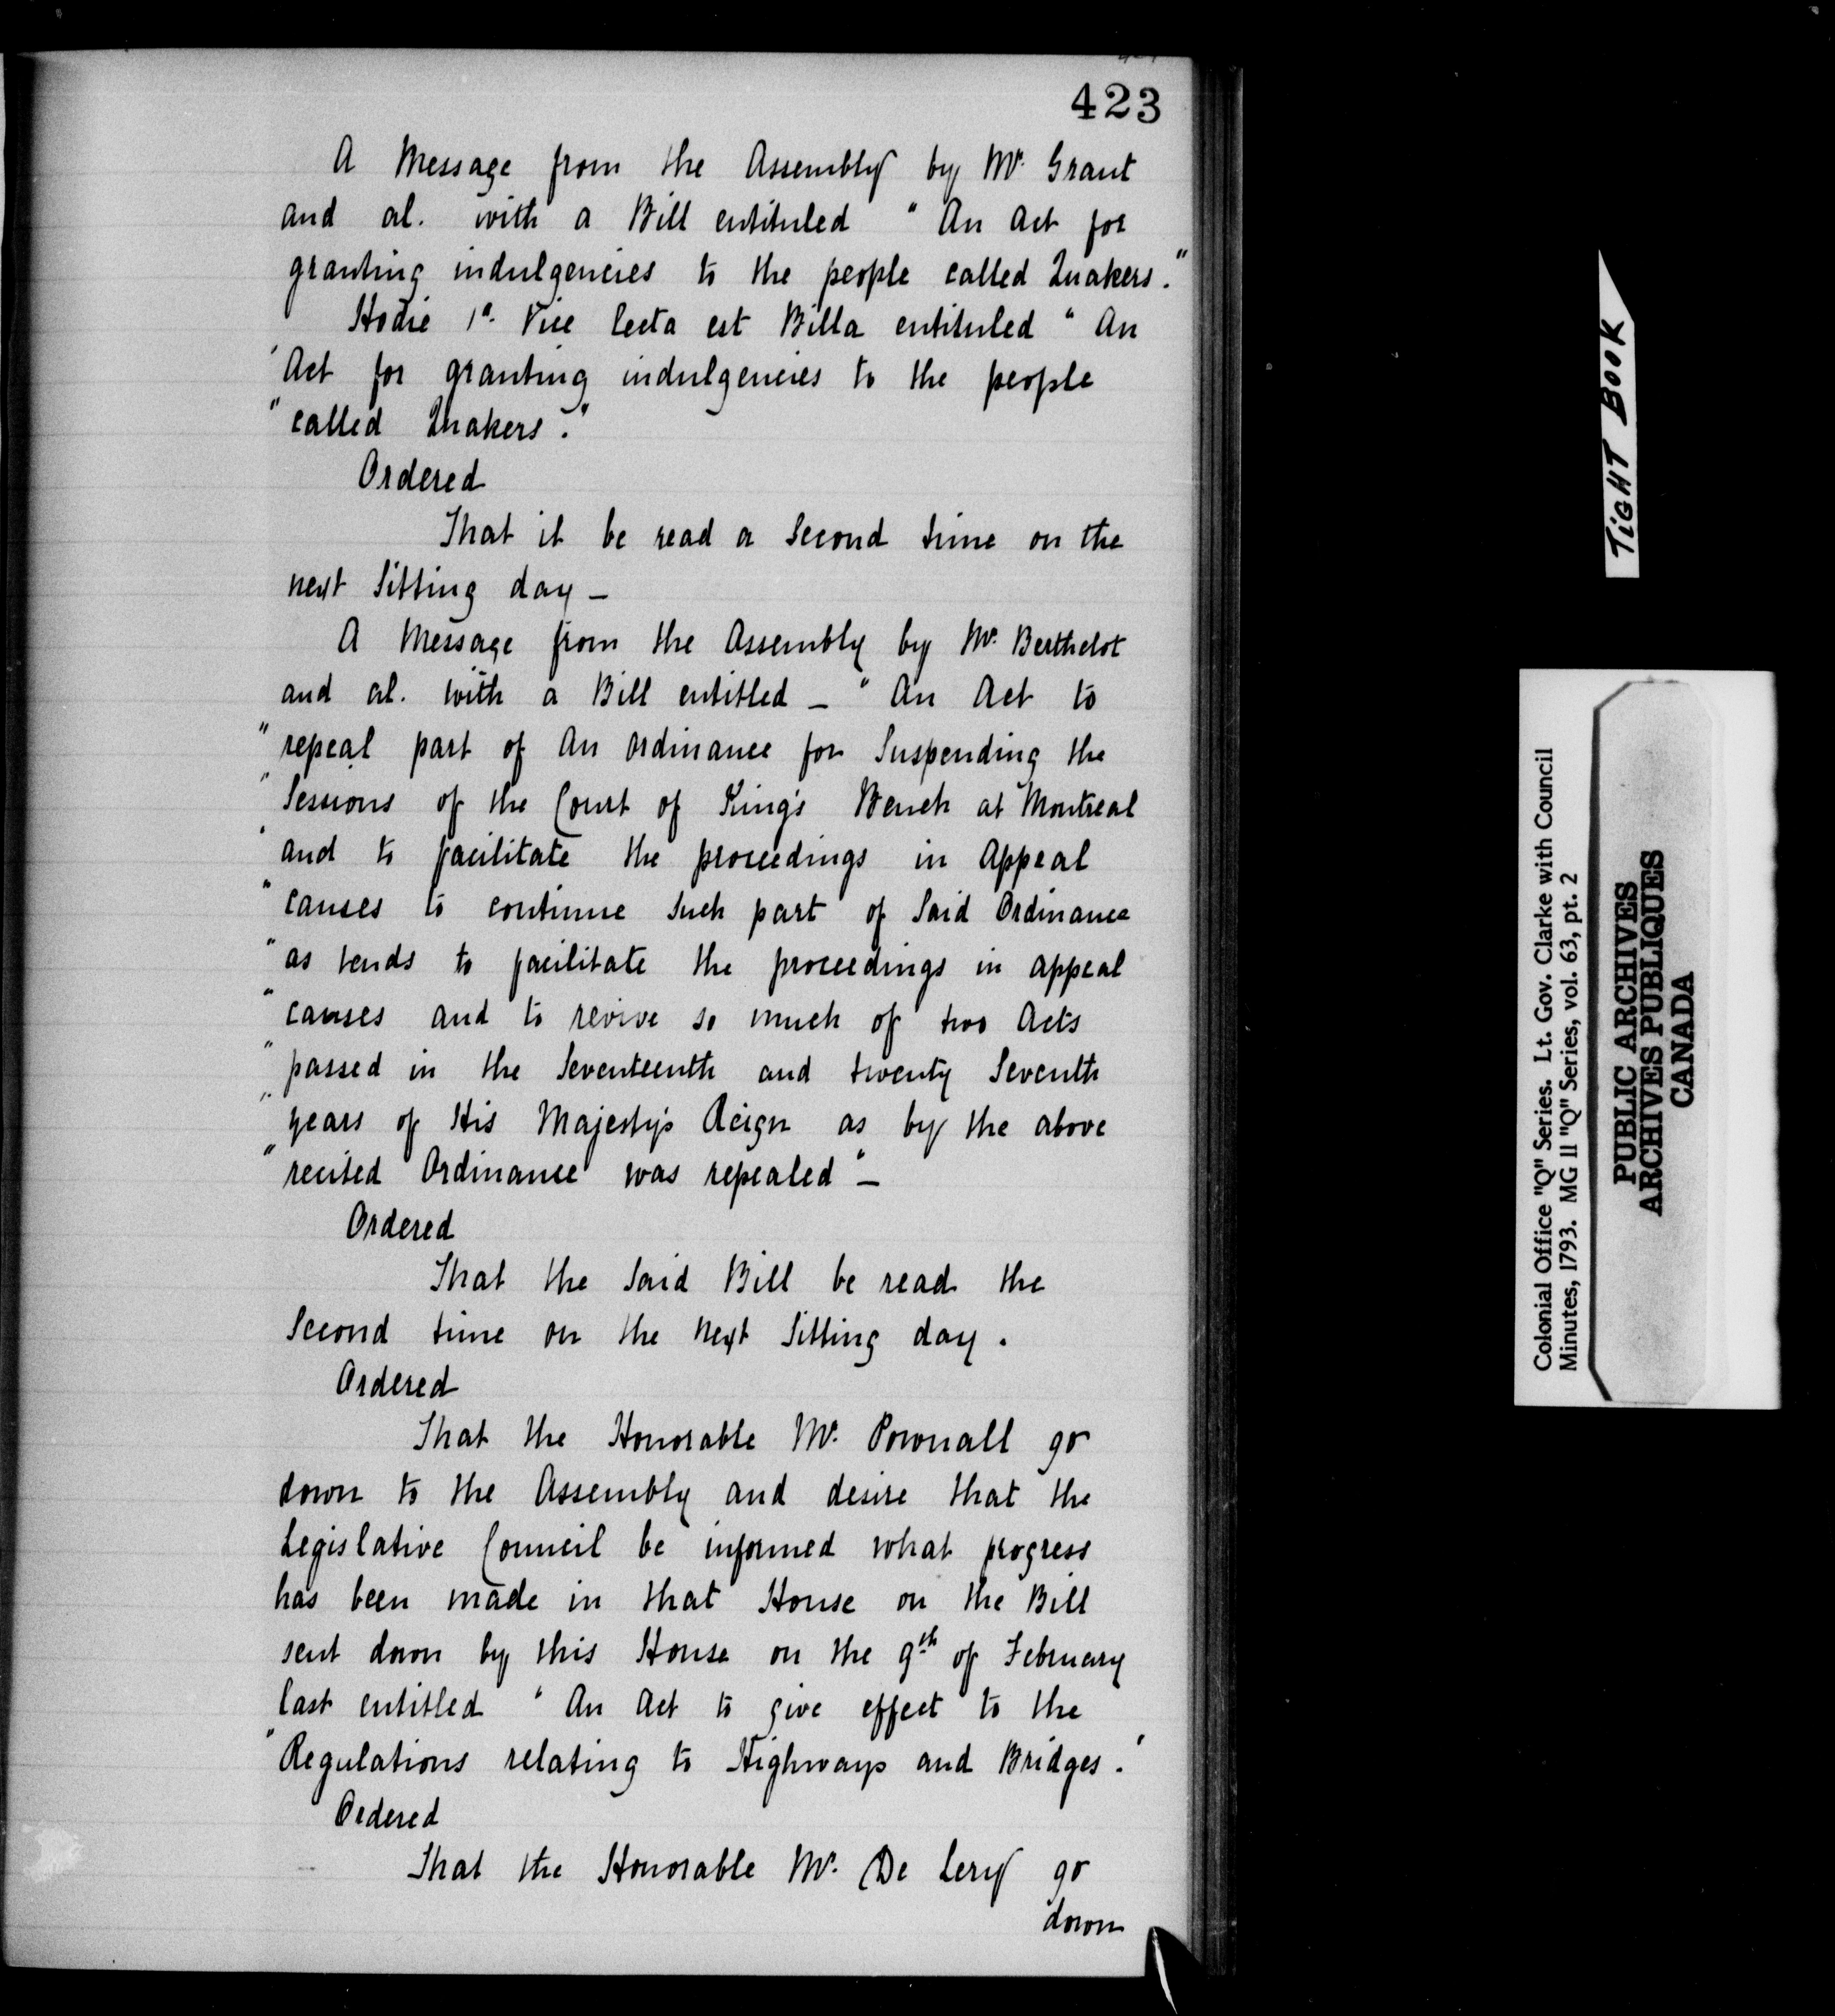 423
A Message from the Assembly by Mr. Grant
and al. with a Bill entituled "An Act for
granting indulgencies to the people called Quakers."
Hodie 1a. Vice lecta est Billa entituled "An
"Act for granting indulgencies to the people
"called Quakers."
Ordered
That it be read a Second time on the
next Sitting day –
A Message from the Assembly by Mr. Berthelot
and al. with a Bill entitled – "An Act to
"repeal part of An Ordinance for Suspending the
"Sessions of the Court of King's Bench at Montreal
"and to facilitate the proceedings in Appeal
"causes to continue such part of Said Ordinance
"as tends to facilitate the proceedings in appeal
"causes and to revive so much of two Acts
"passed in the Seventeenth and twenty Seventh
"years of His Majesty's Reign as by the above
"recited Ordinance was repealed" –
Ordered
That the Said Bill be read the
Second time on the next Sitting day.
Ordered
That the Honorable Mr. Pownall go
down to the Assembly and desire that the
Legislative Council be informed what progress
has been made in that House on the Bill
sent down by this House on the 9th of February
last entitled "An Act to give effect to the
"Regulations relating to Highways and Bridges."
Ordered
That the Honorable Mr. De Lery go
down
TIGHT BOOK
Colonial Office "Q" Series. Lt. Gov. Clarke with Council
Minutes, 1793. MG 11 "Q" Series, vol. 63, pt. 2
PUBLIC ARCHIVES
ARCHIVES PUBLIQUES
CANADA